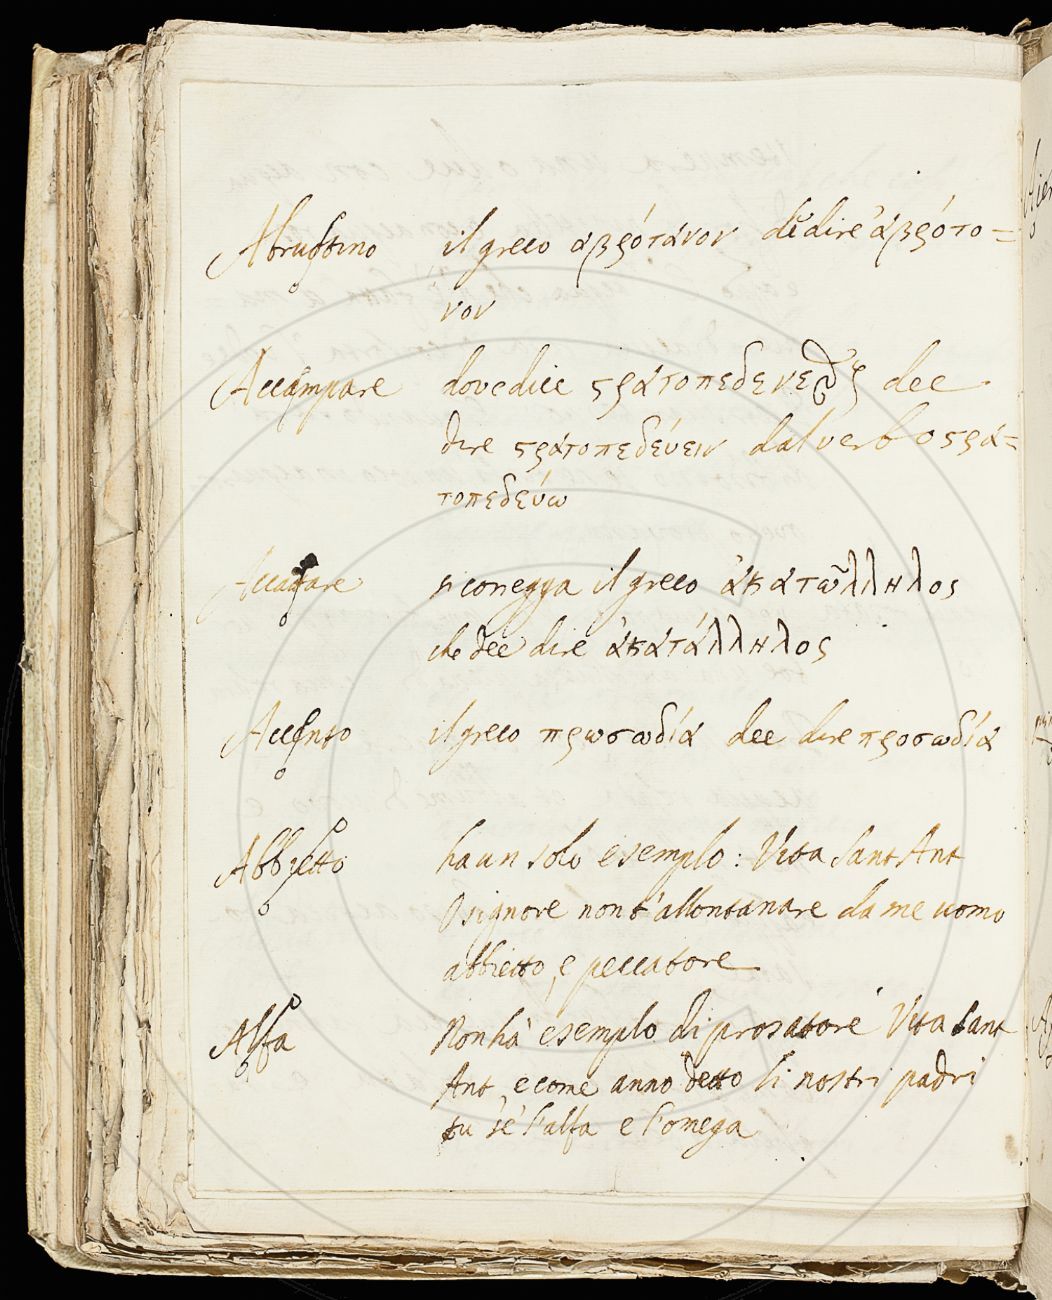 Abrustino il greco αβρότανον dè dire ἀβρότο=
νον
Accampare dove dice στρατοπεδενε dee
dire στρατοπεδεύειν dal verbo στρα=
τοπεδεύω
Accagare si coregga il greco ἀκατωλληλος
che dee dire ἀκατάλληλος
Accento il greco πρωσωδία dee dire προσωδία
Abbietto ha un solo esemplo: Vita Sant Ant
O signore non t'allontanare da me uomo
abbietto, e peccatore
Alfa Non hà esemplo di prosatore Vita Sant
Ant, e come anno detto li nostri padri
tu sè l'alfa e l'omega